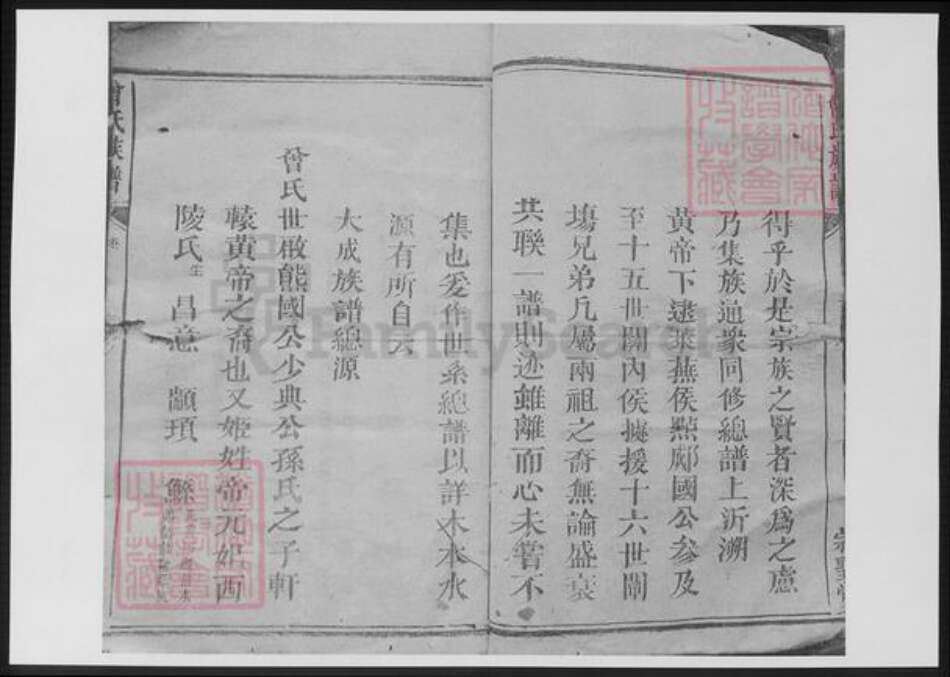 得乎於是宗族之賢者深爲之慮
乃集族通衆同修總譜上沂溯
黃帝下逮萊蕪侯㸃郕國公參及
至十五世關內侯據援十六世闡
塲兄弟凡屬兩祖之裔無論盛衰
共聯一譜則迹雖離而心未嘗不
集也爰作世系總譜以詳木本水
源有所自云
大成族譜總源
曾氏世啟熊國公少典公孫氏之子軒
轅黃帝之裔也又姬姓帝元妃西
陵氏生昌意 顓頊 鯀
曾氏族譜
FamilySearch